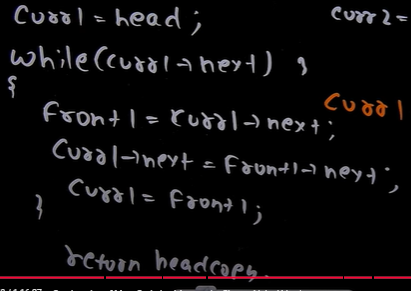 curr1 = head;
curr2 =
while(curr1->next) }
{
curr1
front1 = curr1->next;
curr1->next = front1->next;
curr1 = front1;
}
return headcopy.